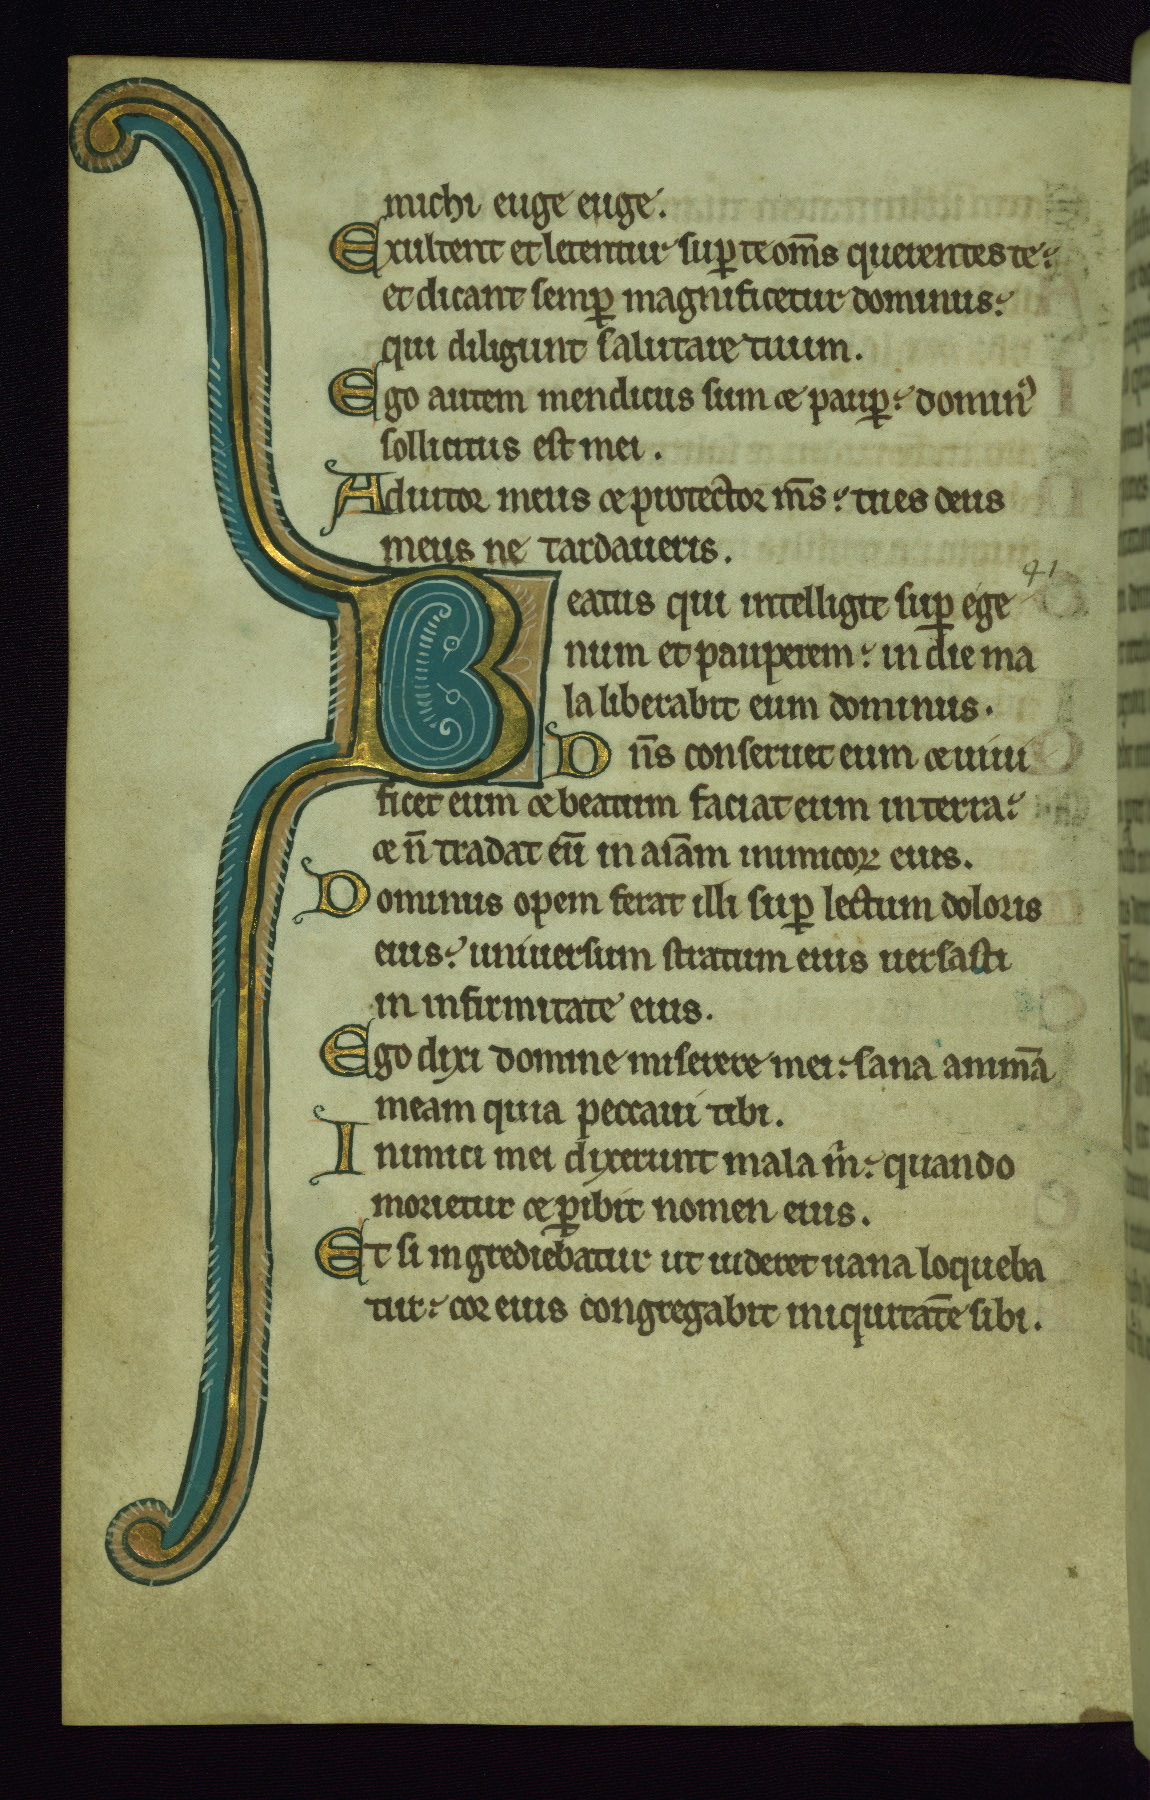 michi euge euge.
Exultent et letentur sup̱ te om̄s querentes te:
et dicant semp̱ magnificetur dominus:
qui diligunt salutare tuum.
Ego autem mendicus sum & paup̱: domin᷒
sollicitus est mei.
Adiutor meus & protector m̄s: tu es deus
meus ne tardaueris.
41
Beatus qui intelligit sup̱ ege
num et pauperem: in die ma
la liberabit eum dominus.
Dn̄s conseruet eum & uiui
ficet eum & beatum faciat eum in terra:
& n̄ tradat eū in aīam inimicoꝝ eius.
Dominus opem ferat illi sup̱ lectum doloris
eius: uniuersum stratum eius uersasti
in infirmitate eius.
Ego dixi domine miserere mei: sana animā
meam quia peccaui tibi.
Inimici mei dixerunt mala m̄: quando
morietur & ꝑibit nomen eius.
Et si ingrediebatur ut uideret uana loqueba
tur: cor eius congregabit iniquitatē sibi.